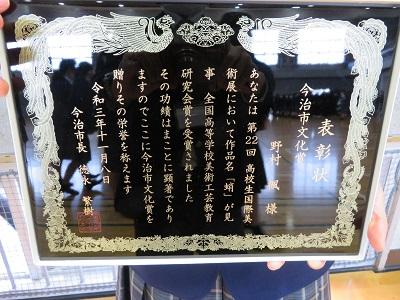 表彰状
今治市文化賞
野村 颯 様
あなたは 第22回 高校生国際美
術展において作品名「蛸」が見
事 全国高等学校美術工芸教育
研究会賞を受賞されました
その功績はまことに顕著であり
ますのでここに今治市文化賞を
贈りその栄誉を称えます
令和三年十一月八日
今治市長 徳永 繁樹